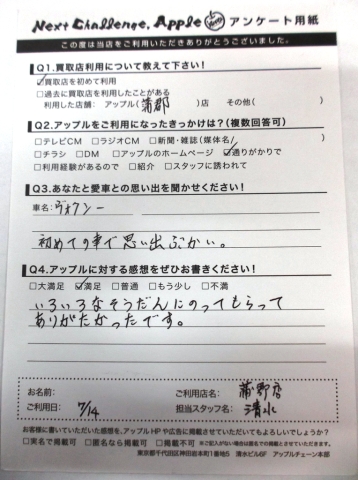 Next Challenge, Apple アンケート用紙
この度は当店をご利用いただきありがとうございました。
Q1.買取店利用について教えて下さい!
☑買取店を初めて利用
□過去に買取店を利用したことがある
利用した店舗: アップル(蒲郡)店 その他( )
Q2.アップルをご利用になったきっかけは?(複数回答可)
□テレビCM □ラジオCM □新聞・雑誌(媒体名 )
□チラシ □DM □アップルのホームページ ☑通りがかりで
□利用経験があるので □紹介 □スタッフに誘われて
Q3.あなたと愛車との思い出を聞かせください!
車名:ヴォクシー
初めての車で思い出ぶかい。
Q4.アップルに対する感想をぜひお書きください!
□大満足 ☑満足 □普通 □もう少し □不満
いろいろなそうだんにのってもらって
ありがたかったです。
お名前: ご利用店名: 蒲郡店
ご利用日: 7/14 担当スタッフ名: 清水
お客様に書いていただいた感想を、アップルHPや広告に掲載させていただいてもよろしいでしょうか?
□実名で掲載可 □匿名なら掲載可 □掲載不可 ※ご記入がない場合は匿名での掲載とさせていただきます。
東京都千代田区神田岩本町1番地5 清水ビル6F アップルチェーン本部